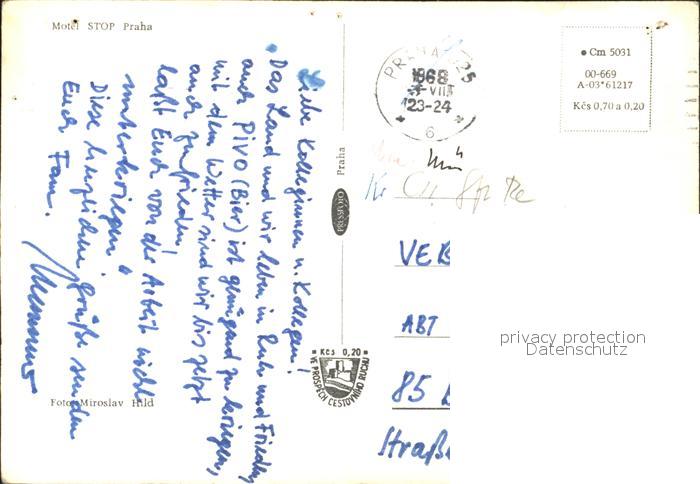 Motel STOP Praha
Liebe Kolleginnen u. Kollegen!
Das Land und wir leben in Ruhe und Frieden,
auch PIVO (Bier) ist genügend zu kriegen,
mit dem Wetter sind wir bis jetzt
auch zufrieden!
Laßt Euch von der Arbeit nicht
unterkriegen"
Diese herzlichen Grüße senden
Euch Fam.
Foto Miroslav Hild
Praha
PRESSFOTO
PRAHA 025
1968
VIII
23-24
6
• Cm 5031
00-669
A-03*61217
Kčs 0,70 a 0,20
VER
ABT
85
Straß
Kčs 0,20
VE PROSPĚCH CESTOVNÍHO RUCHU
privacy protection
Datenschutz